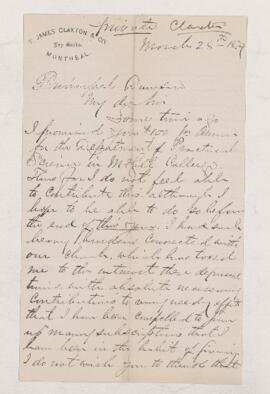 private
T. JAMES CLAXTON & CO.
Dry Goods.
MONTREAL.
March 28th 1879
Principal Dawson
My dear Sir
Some time ago
I promised you $100 per annum
for the Department of Practical
Science in McGill College.
Thus far I do not feel able
to contribute this although I
hope to be able to do so before
the end of this year. I had such
heavy burdens connected with
our Church, which has taxed
me to the utmost these depressed
times with absolute necessary
contributions to many needy objects
that I have been compelled to give
up many subscriptions that I
have been in the habit of giving
I do not wish you to think that